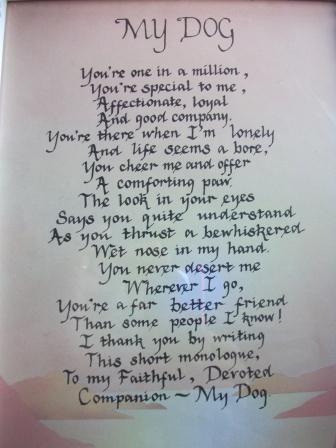 MY DOG
You're one in a million,
You're special to me,
Affectionate, loyal
And good company.
You're there when I'm lonely
And life seems a bore,
You cheer me and offer
A comforting paw.
The look in your eyes
Says you quite understand
As you thrust a bewhiskered
Wet nose in my hand.
You never desert me
Wherever I go,
You're a far better friend
Than some people I know!
I thank you by writing
This short monologue,
To my Faithful, Devoted
Companion ~ My Dog.